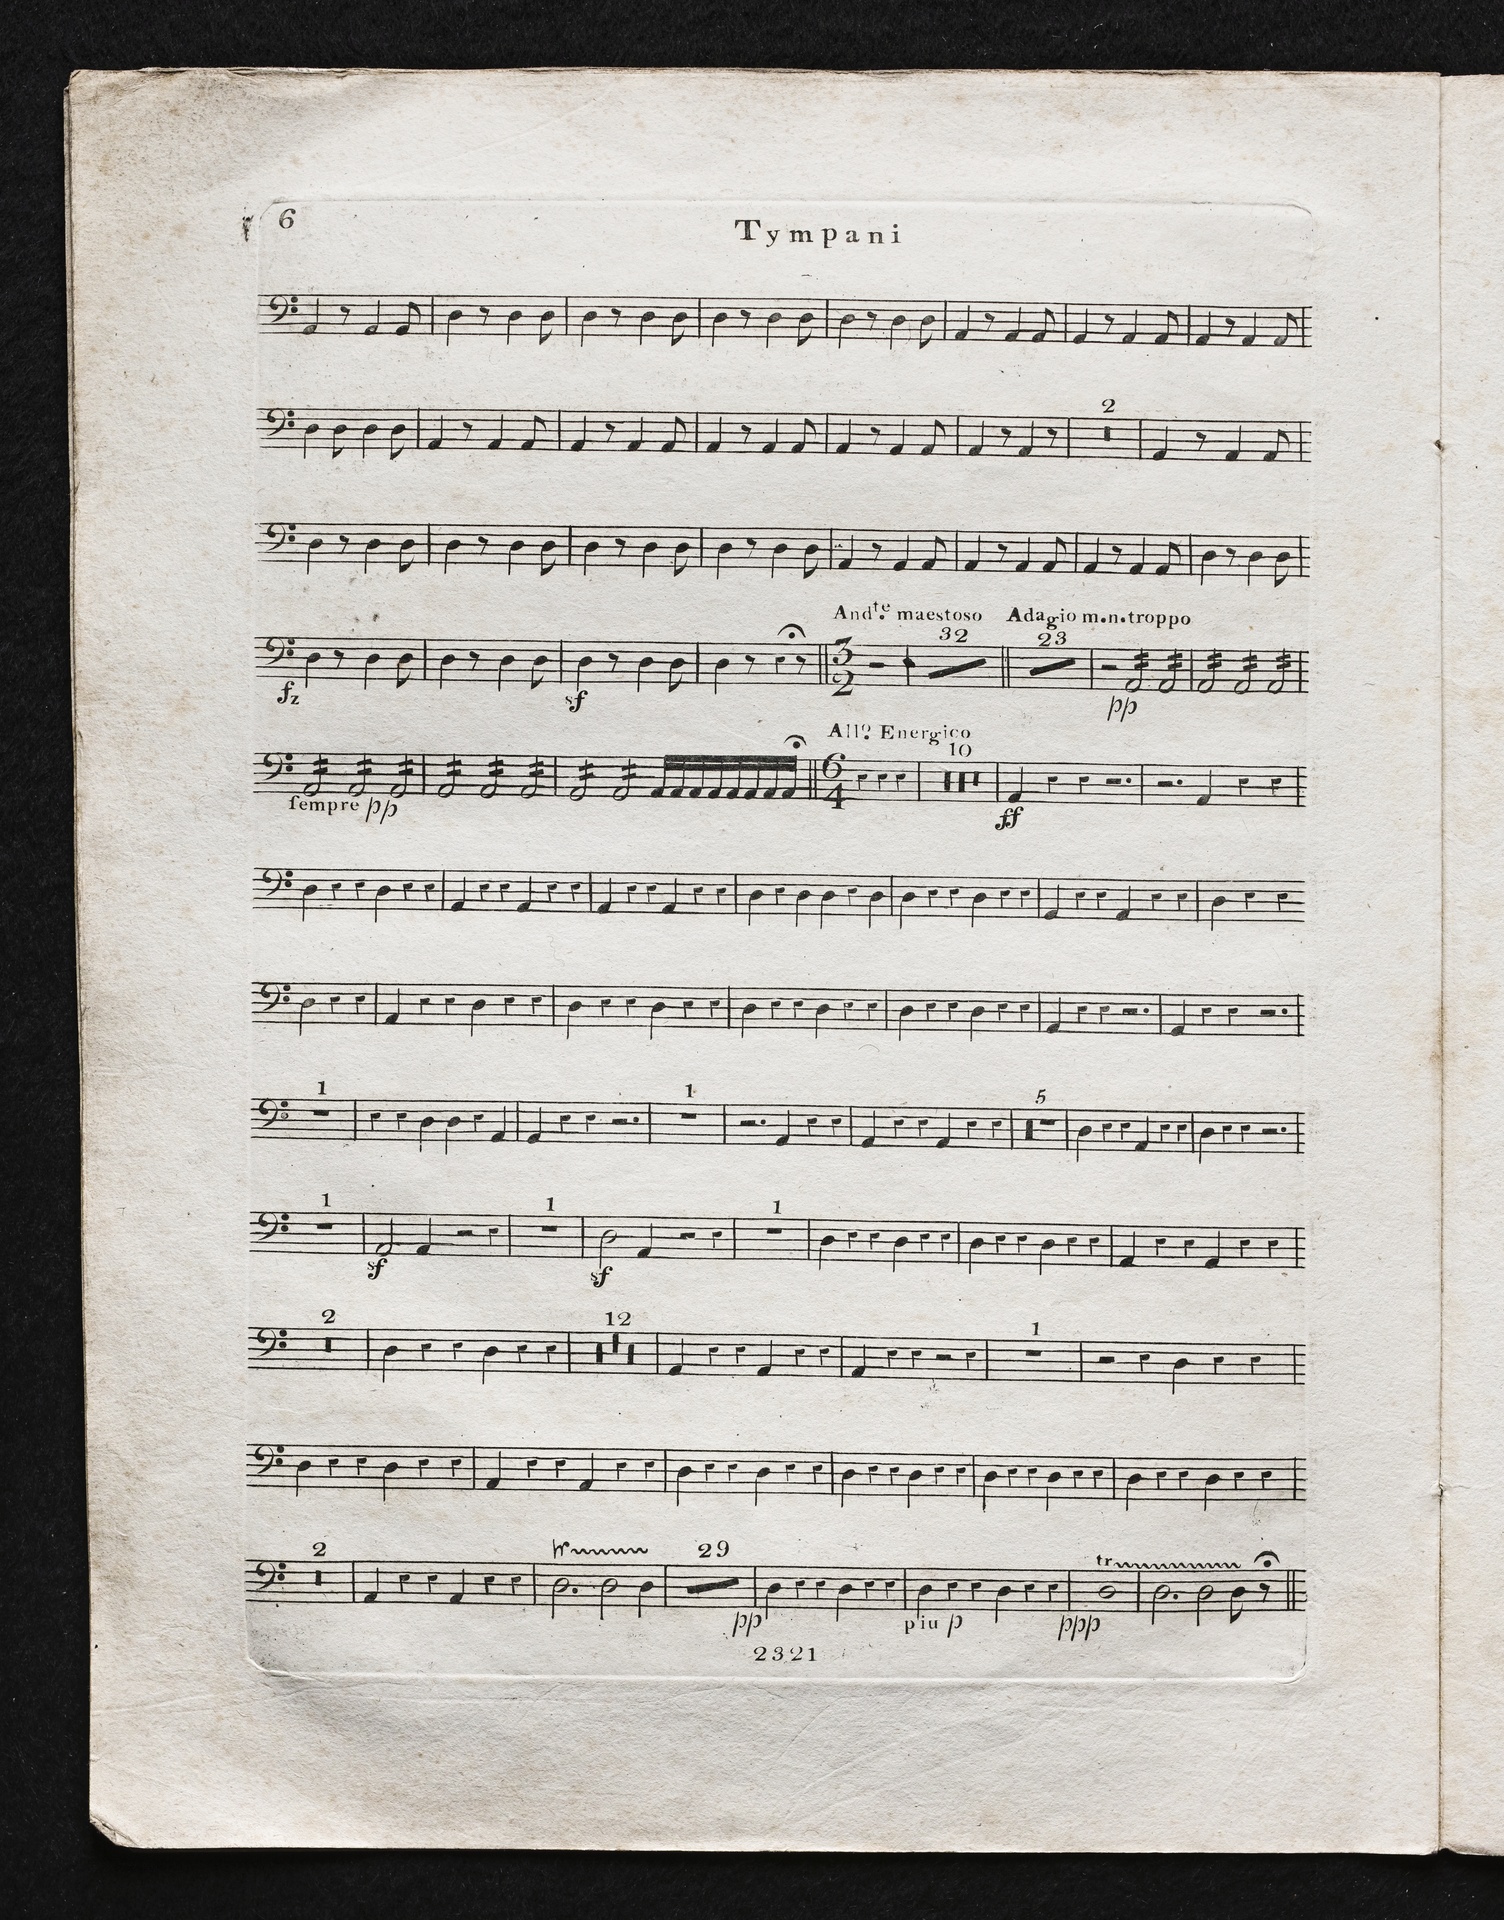 6
Tympani
2
Andte. maestoso Adagio m.n.troppo
32 23
fz sf pp
3
2
Allo. Energico
10
6
4
ſempre pp ff
1 1 5
1 1 1
sf sf
2 12 1
2 tr 29 tr
pp piu p ppp
2321